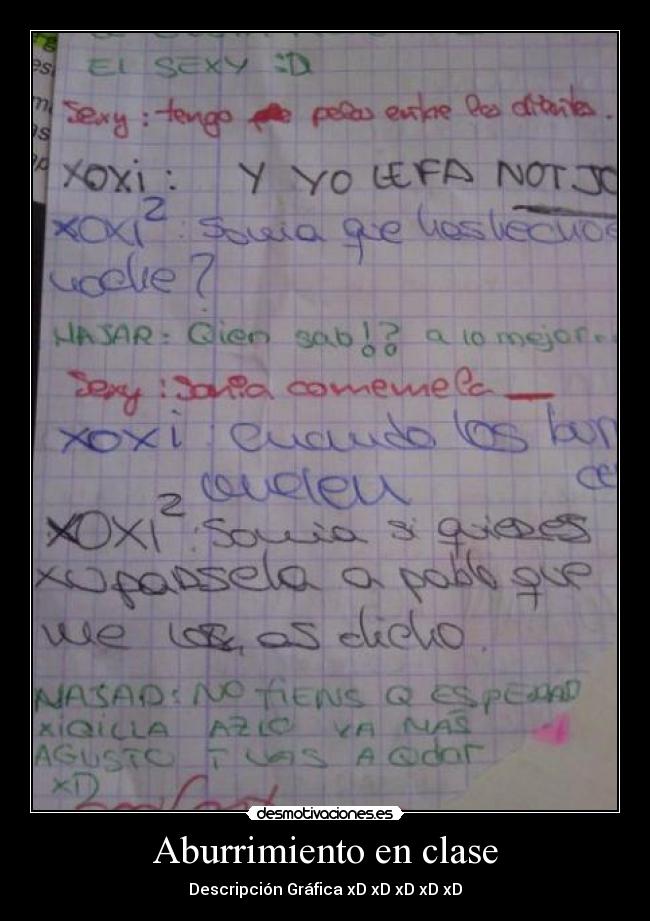 EL SEXY :D
Sexy : tengo pelos entre los dientes.
XOXi : Y YO LEFA NOT JO
XOXI² : Sonia que has hecho
noche?
NASAR : Qien sab!? a lo mejor...
Sexy : Sonia comemela
XOXi : Cuando los bur
vuelen ce
XOXI² : Sonia si quieres
xuparsela a pablo que
me los as dicho.
NASAR : NO TIENS Q ESPERAR
XIQILLA AZLO YA MAS
AGUSTO T VAS A QdAr
XD
desmotivaciones.es
Aburrimiento en clase
Descripción Gráfica xD xD xD xD xD